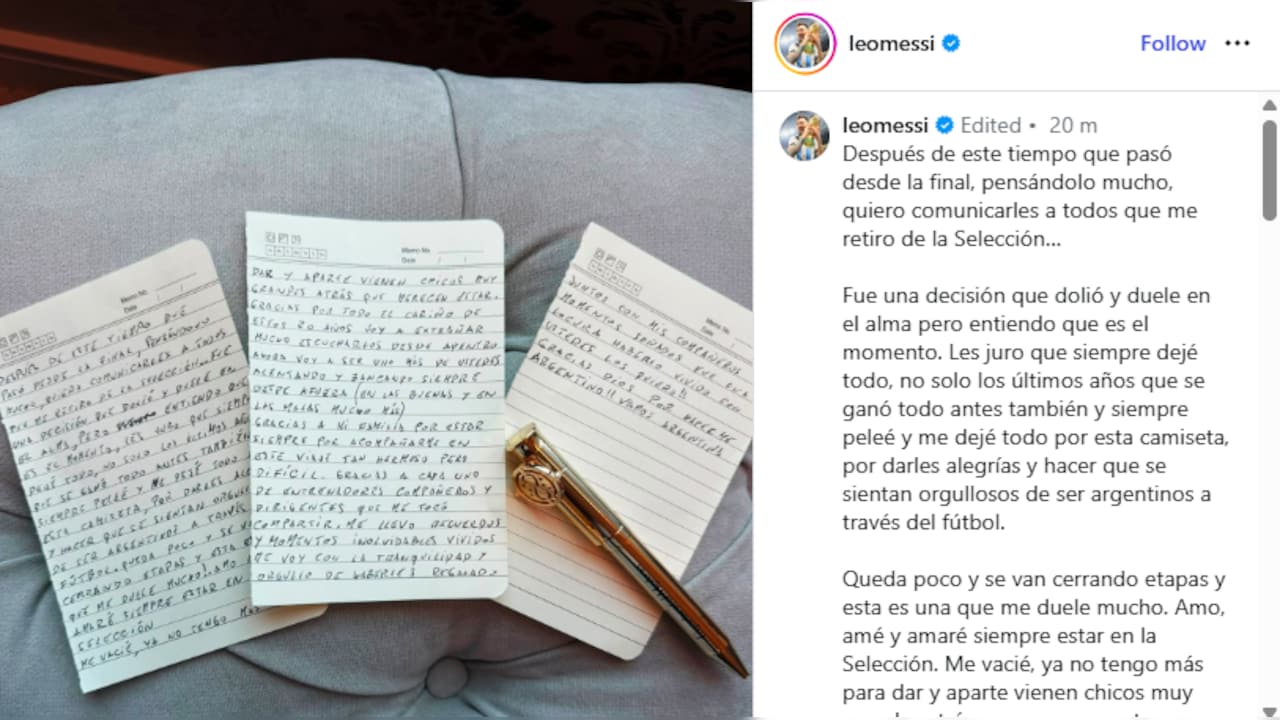 DESPUÉS DE ESTE TIEMPO QUE
PASÓ DESDE LA FINAL, PENSÁNDOLO
MUCHO, QUIERO COMUNICARLES A TODOS
QUE ME RETIRO DE LA SELECCIÓN. FUE
UNA DECISIÓN QUE DOLIÓ Y DUELE EN
EL ALMA, PERO ENTIENDO QUE
ES EL MOMENTO. LES JURO QUE SIEMPRE
DEJÉ TODO, NO SOLO LOS ÚLTIMOS AÑOS
QUE SE GANÓ TODO ANTES TAMBIÉN
SIEMPRE PELEÉ Y ME DEJÉ TODO
ESTA CAMISETA, POR DARLES ALE
Y HACER QUE SE SIENTAN ORGULLO
DE SER ARGENTINOS A TRAVÉS
FÚTBOL. QUEDA POCO Y SE V
CERRANDO ETAPAS Y ESTA E
QUE ME DUELE MUCHO! AMO
AMARÉ SIEMPRE ESTAR EN
SELECCIÓN
ME VACIÉ, YA NO TENGO MÁS
Memo No.
Date / /
DAR Y APARTE VIENEN CHICOS MUY
GRANDES ATRÁS QUE MERECEN ESTAR.
GRACIAS POR TODO EL CARIÑO DE
ESTOS 20 AÑOS VOY A EXTRAÑAR
MUCHO ESCUCHARLOS DESDE ADENTRO
AHORA VOY A SER UNO MÁS DE USTEDES
ALENTANDO Y BANCANDO SIEMPRE
DESDE AFUERA (EN LAS BUENAS Y EN
LAS MALAS MUCHO MÁS)
GRACIAS A MI FAMILIA POR ESTAR
SIEMPRE POR ACOMPAÑARME EN
ESTE VIAJE TAN HERMOSO PERO
DIFÍCIL. GRACIAS A CADA UNO
DE ENTRENADORES COMPAÑEROS Y
DIRIGENTES QUE ME TOCÓ
COMPARTIR. ME LLEVO RECUERDOS
Y MOMENTOS INOLVIDABLES VIVIDOS
ME VOY CON LA TRANQUILIDAD Y
ORGULLO DE HABERLES REGALADO
Memo No.
Date / /
JUNTOS CON MIS COMPAÑEROS
MOMENTOS SOÑADOS QUE ERA
LOCURA HABERLO VIVIDO CON
USTEDES LOS QUIERO!!
GRACIAS DIOS POR HACERME
ARGENTINO!! VAMOS ARGENTINA
Memo No.
Date
leomessi
Follow
leomessi Edited • 20 m
Después de este tiempo que pasó
desde la final, pensándolo mucho,
quiero comunicarles a todos que me
retiro de la Selección...
Fue una decisión que dolió y duele en
el alma pero entiendo que es el
momento. Les juro que siempre dejé
todo, no solo los últimos años que se
ganó todo antes también y siempre
peleé y me dejé todo por esta camiseta,
por darles alegrías y hacer que se
sientan orgullosos de ser argentinos a
través del fútbol.
Queda poco y se van cerrando etapas y
esta es una que me duele mucho. Amo,
amé y amaré siempre estar en la
Selección. Me vacié, ya no tengo más
para dar y aparte vienen chicos muy